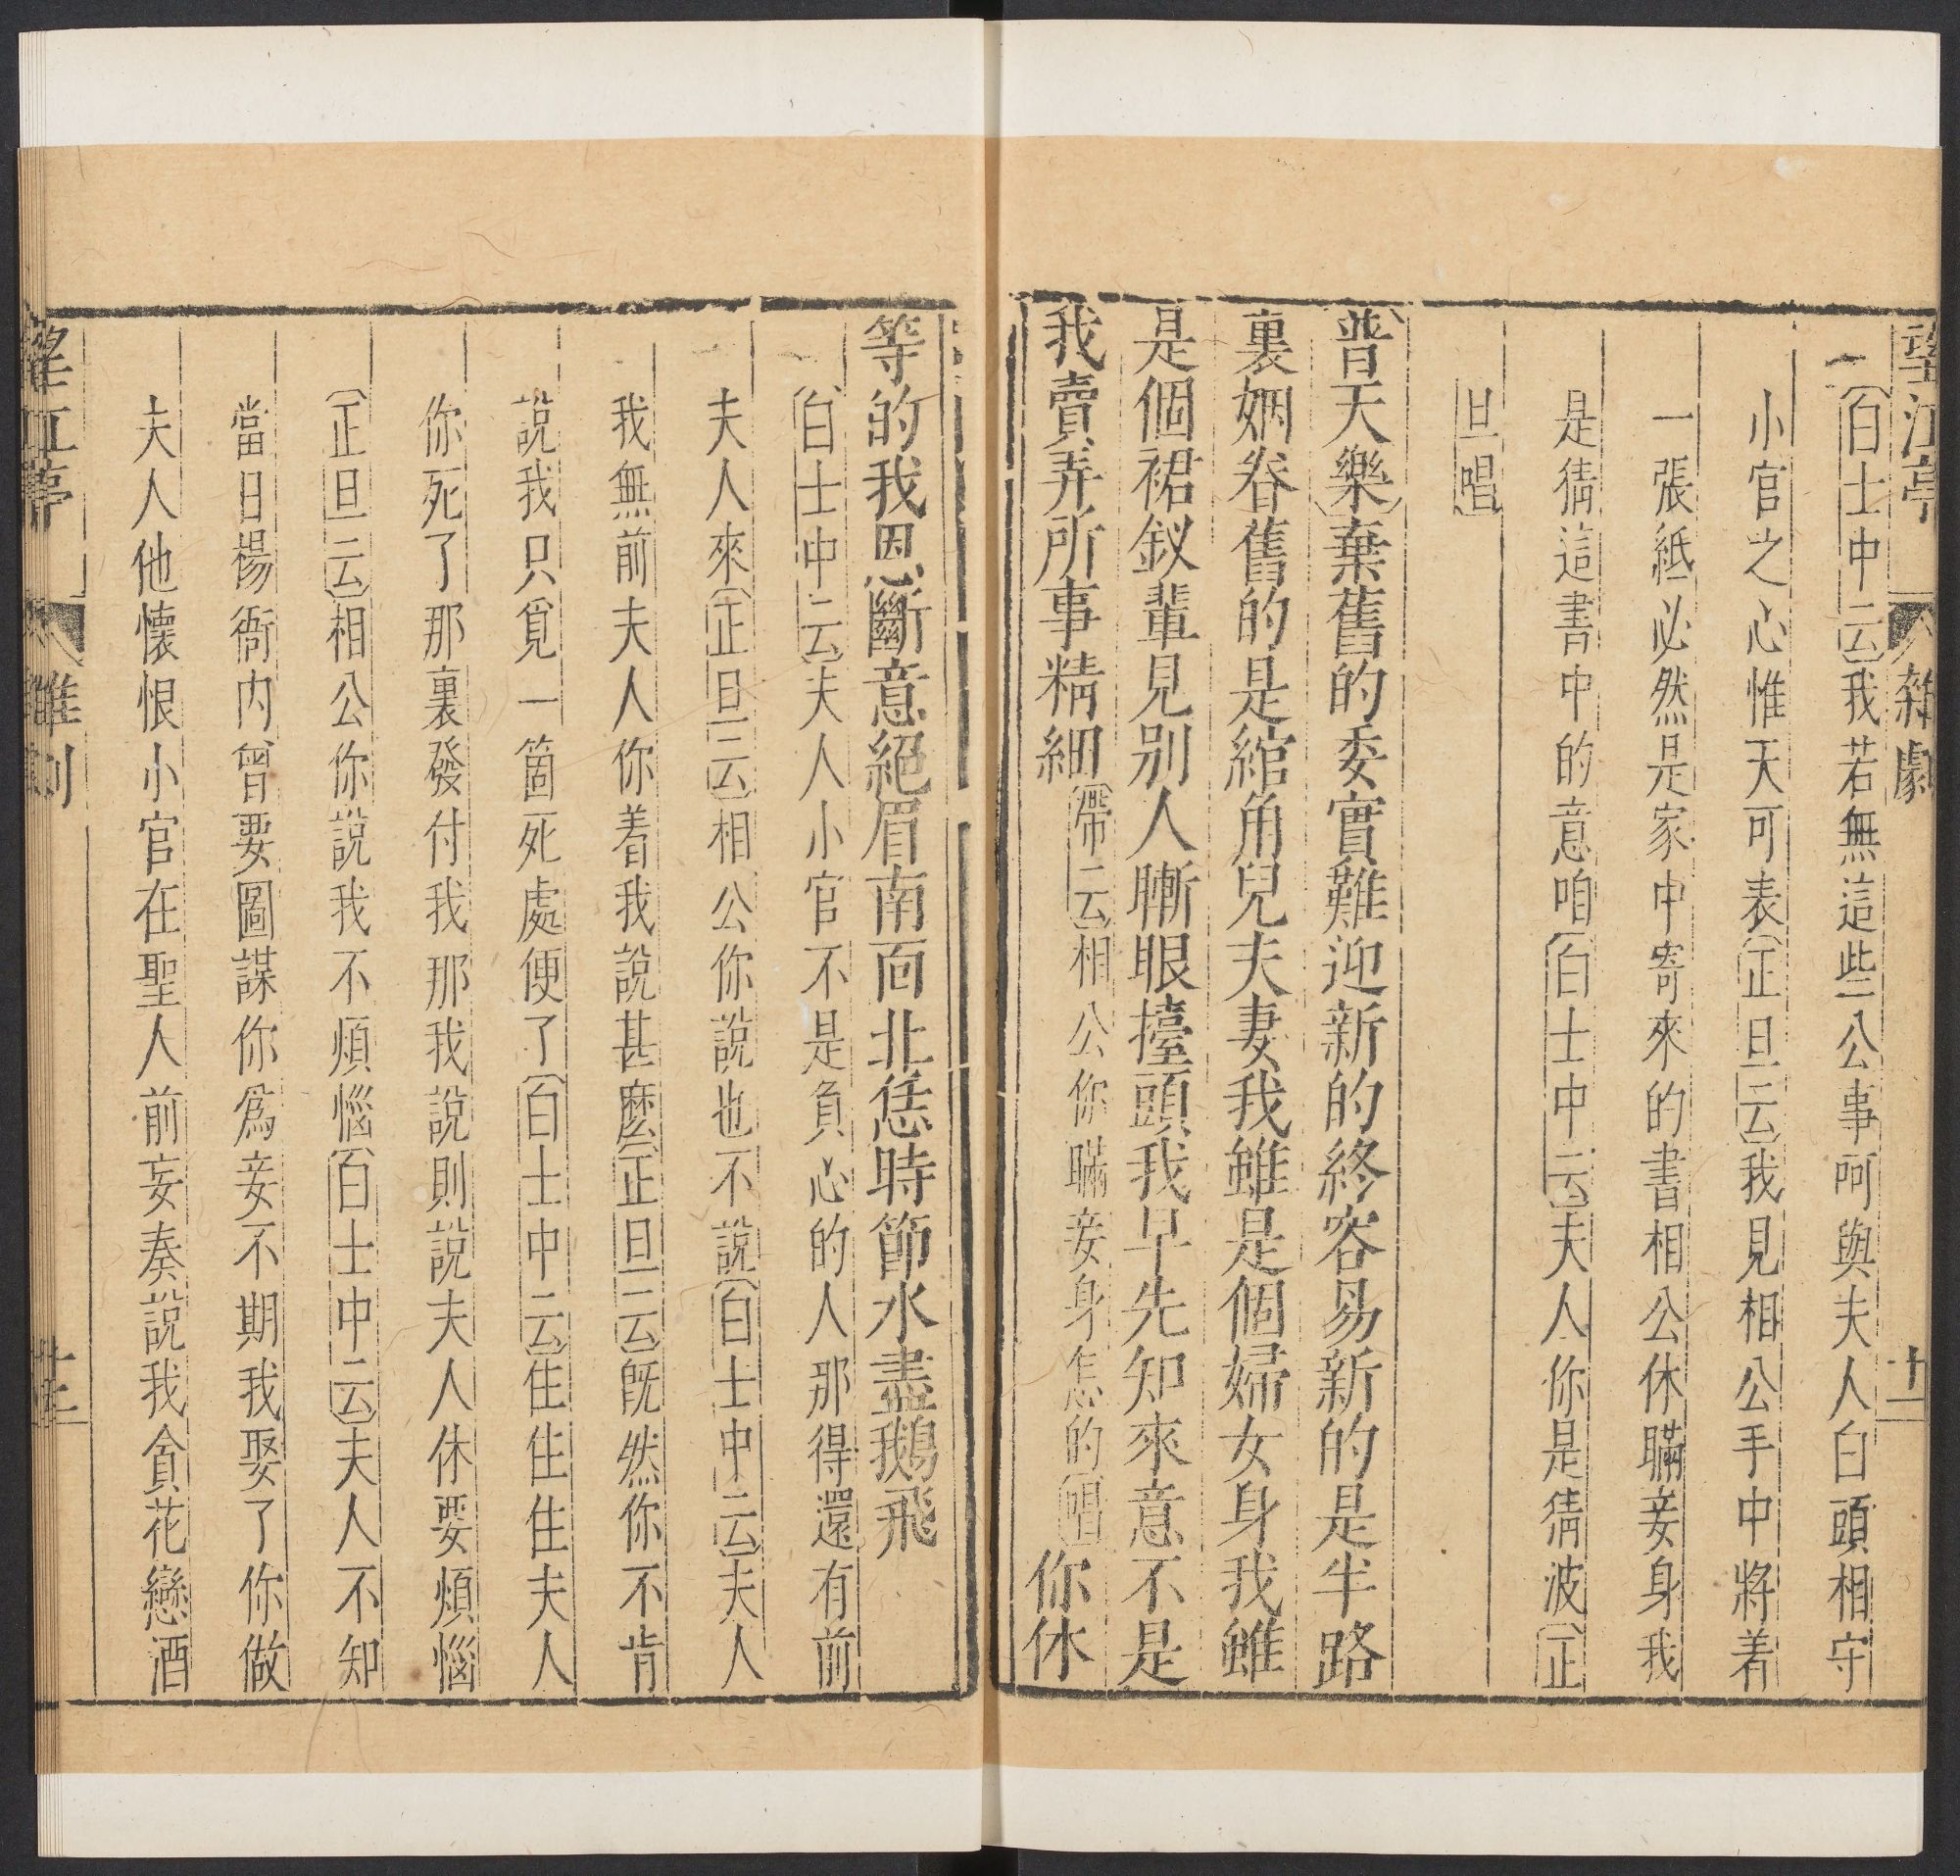 望江亭 雜劇 十一
〔白士中云〕我若無這些公事呵與夫人白頭相守
小官之心惟天可表〔正旦云〕我見相公手中將着
一張紙必然是家中寄來的書相公休瞞妾身我
是猜這書中的意咱〔白士中云〕夫人你是猜波〔正
旦唱〕
〔普天樂〕棄舊的委實難迎新的終容易新的是半路
裏姻眷舊的是綰角兒夫妻我雖是個婦女身我雖
是個裙釵輩見別人𥊑眼擡頭我早先知來意不是
我賣弄所事精細〔帶云〕相公你瞞妾身怎的〔唱〕你休
等的我恩斷意絕眉南面北恁時節水盡鵝飛
〔白士中云〕夫人小官不是負心的人那得還有前
夫人來〔正旦云〕相公你說也不說〔白士中云〕夫人
我無前夫人你着我說甚麽〔正旦云〕旣然你不肯
說我只覓一箇死處便了〔白士中云〕住住住夫人
你死了那裏發付我那我說則說夫人休要煩惱
〔正旦云〕相公你說我不煩惱〔白士中云〕夫人不知
當日楊衙內曾要圖謀你爲妾不期我娶了你做
夫人他懷恨小官在聖人前妄奏說我貪花戀酒
望江亭 雜劇